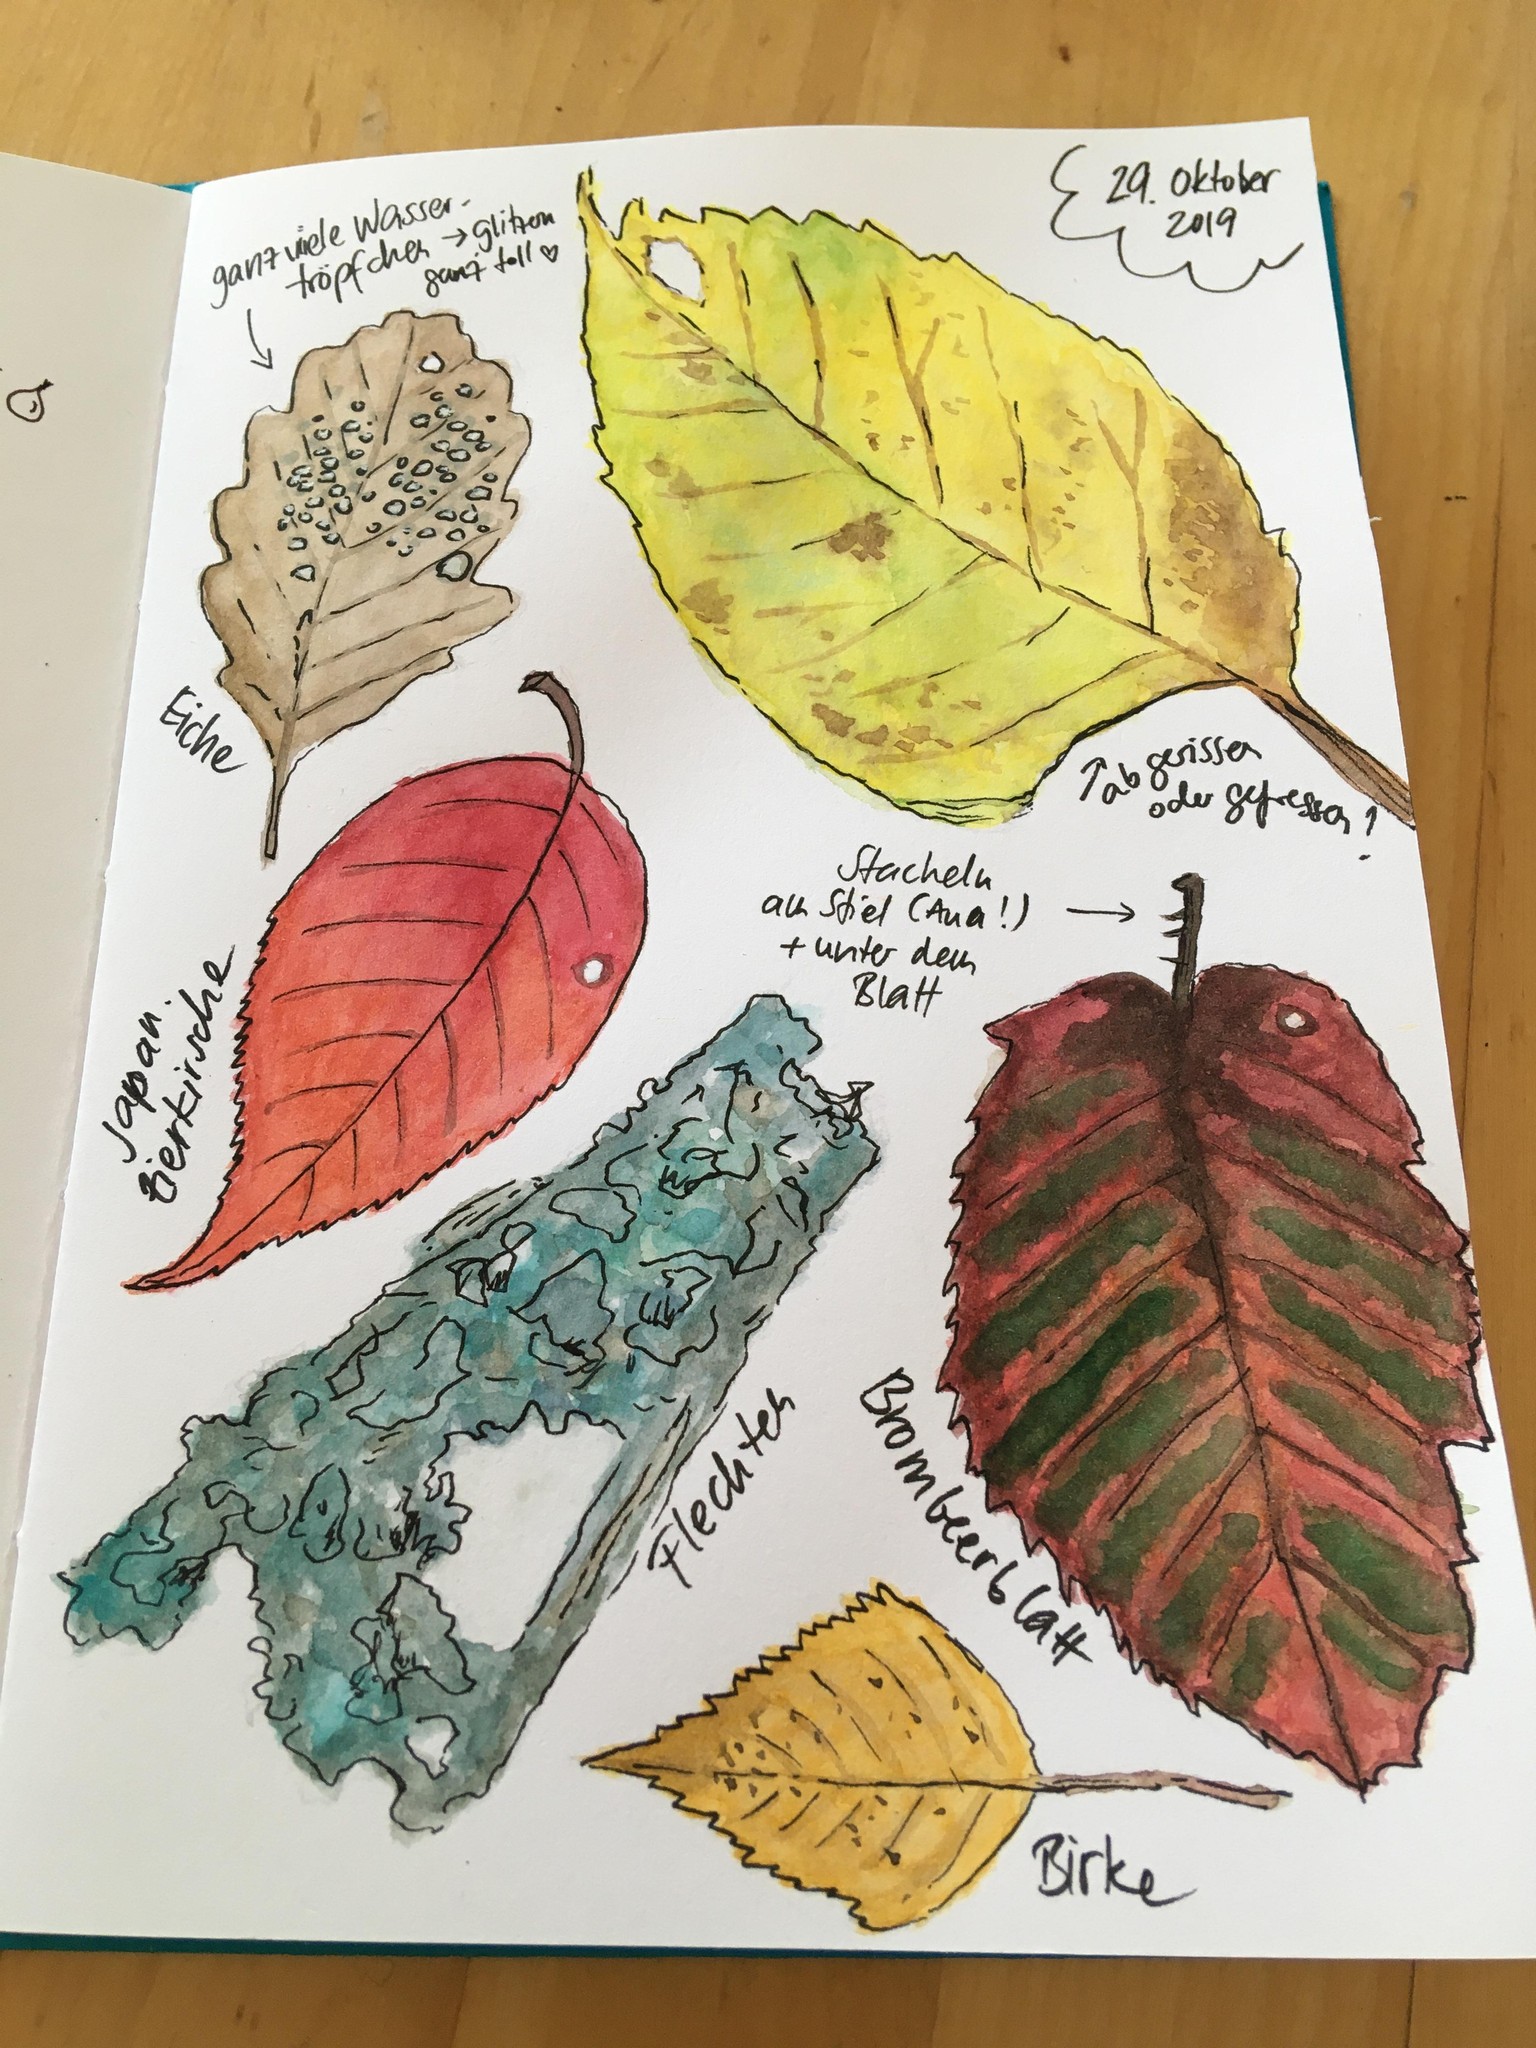 29. Oktober
2019
ganz viele Wasser-
tröpfchen → glitzern
ganz toll ♡
Eiche
↑ abgerissen
oder gefressen?
Stacheln
am Stiel (Aua!) →
+ unter dem
Blatt
Japan.
Zierkirsche
Flechten
Brombeerblatt
Birke